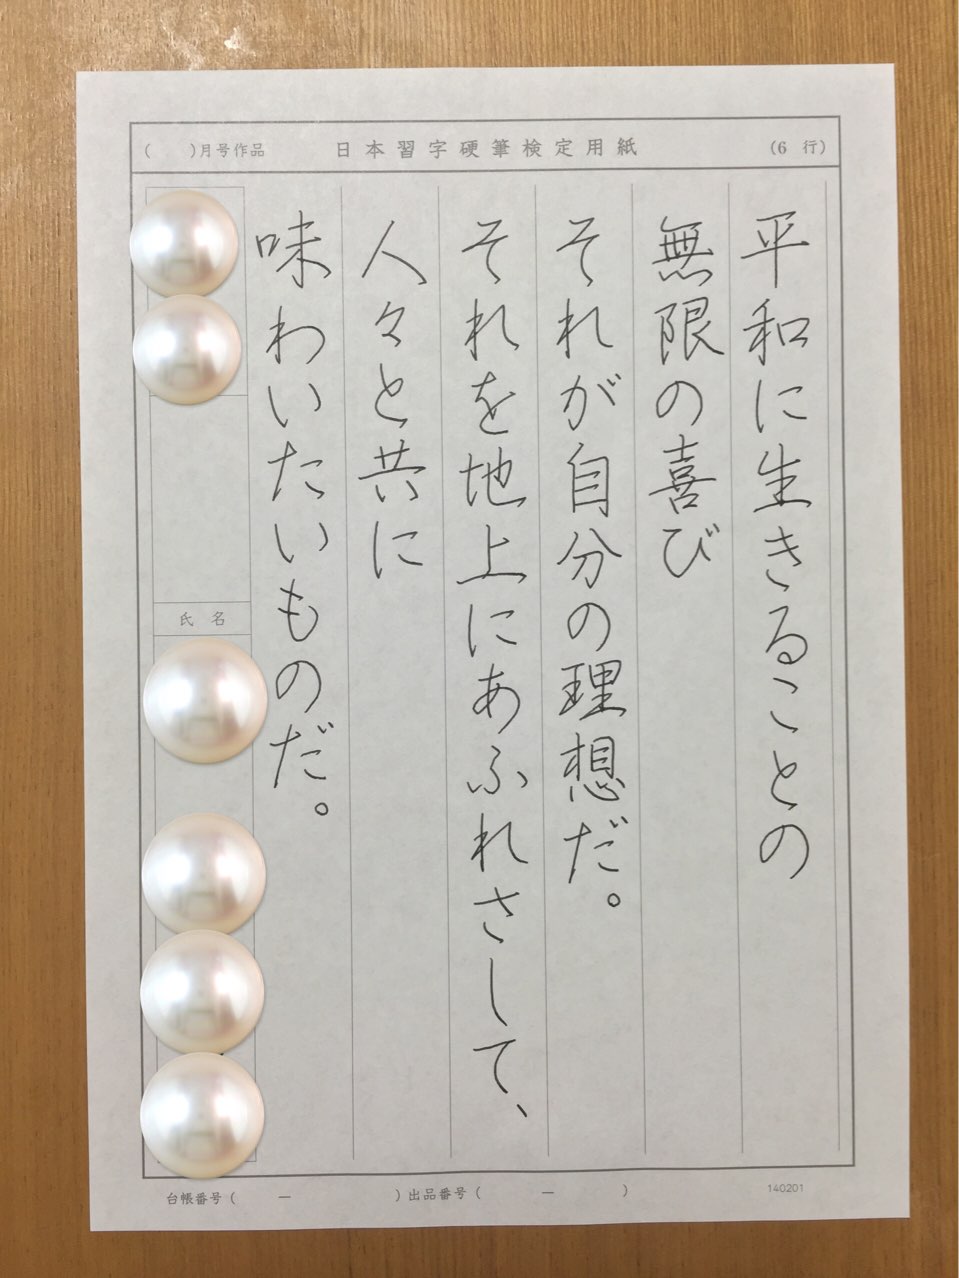 ( )月号作品 日本習字硬筆検定用紙 (6 行)
平和に生きることの
無限の喜び
それが自分の理想だ。
それを地上にあふれさして、
人々と共に
味わいたいものだ。
氏 名
台帳番号( ー )出品番号( ー )
140201